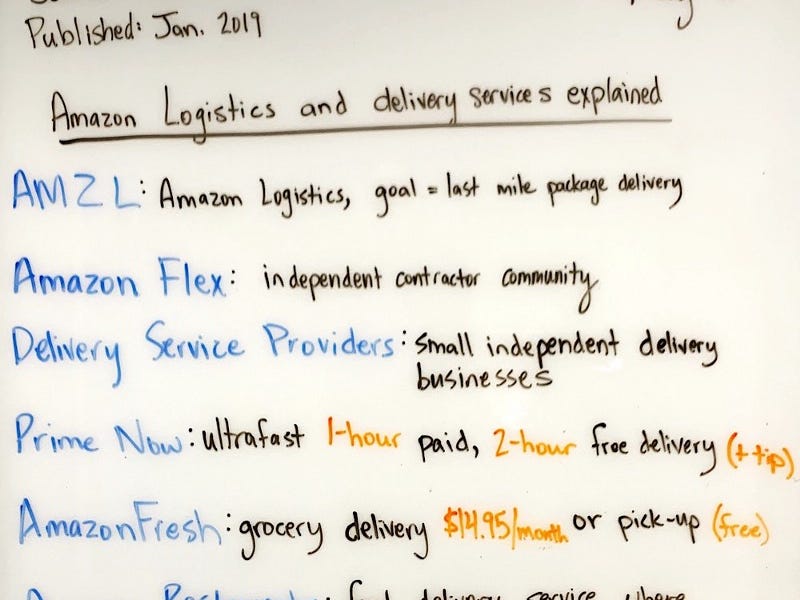 Published: Jan. 2019
Amazon Logistics and delivery services explained
AMZL: Amazon Logistics, goal = last mile package delivery
Amazon Flex: independent contractor community
Delivery Service Providers: small independent delivery
businesses
Prime Now: ultrafast 1-hour paid, 2-hour free delivery (+ tip)
AmazonFresh: grocery delivery $14.95/month or pick-up (free)
Amazon Restaurants: food delivery service where